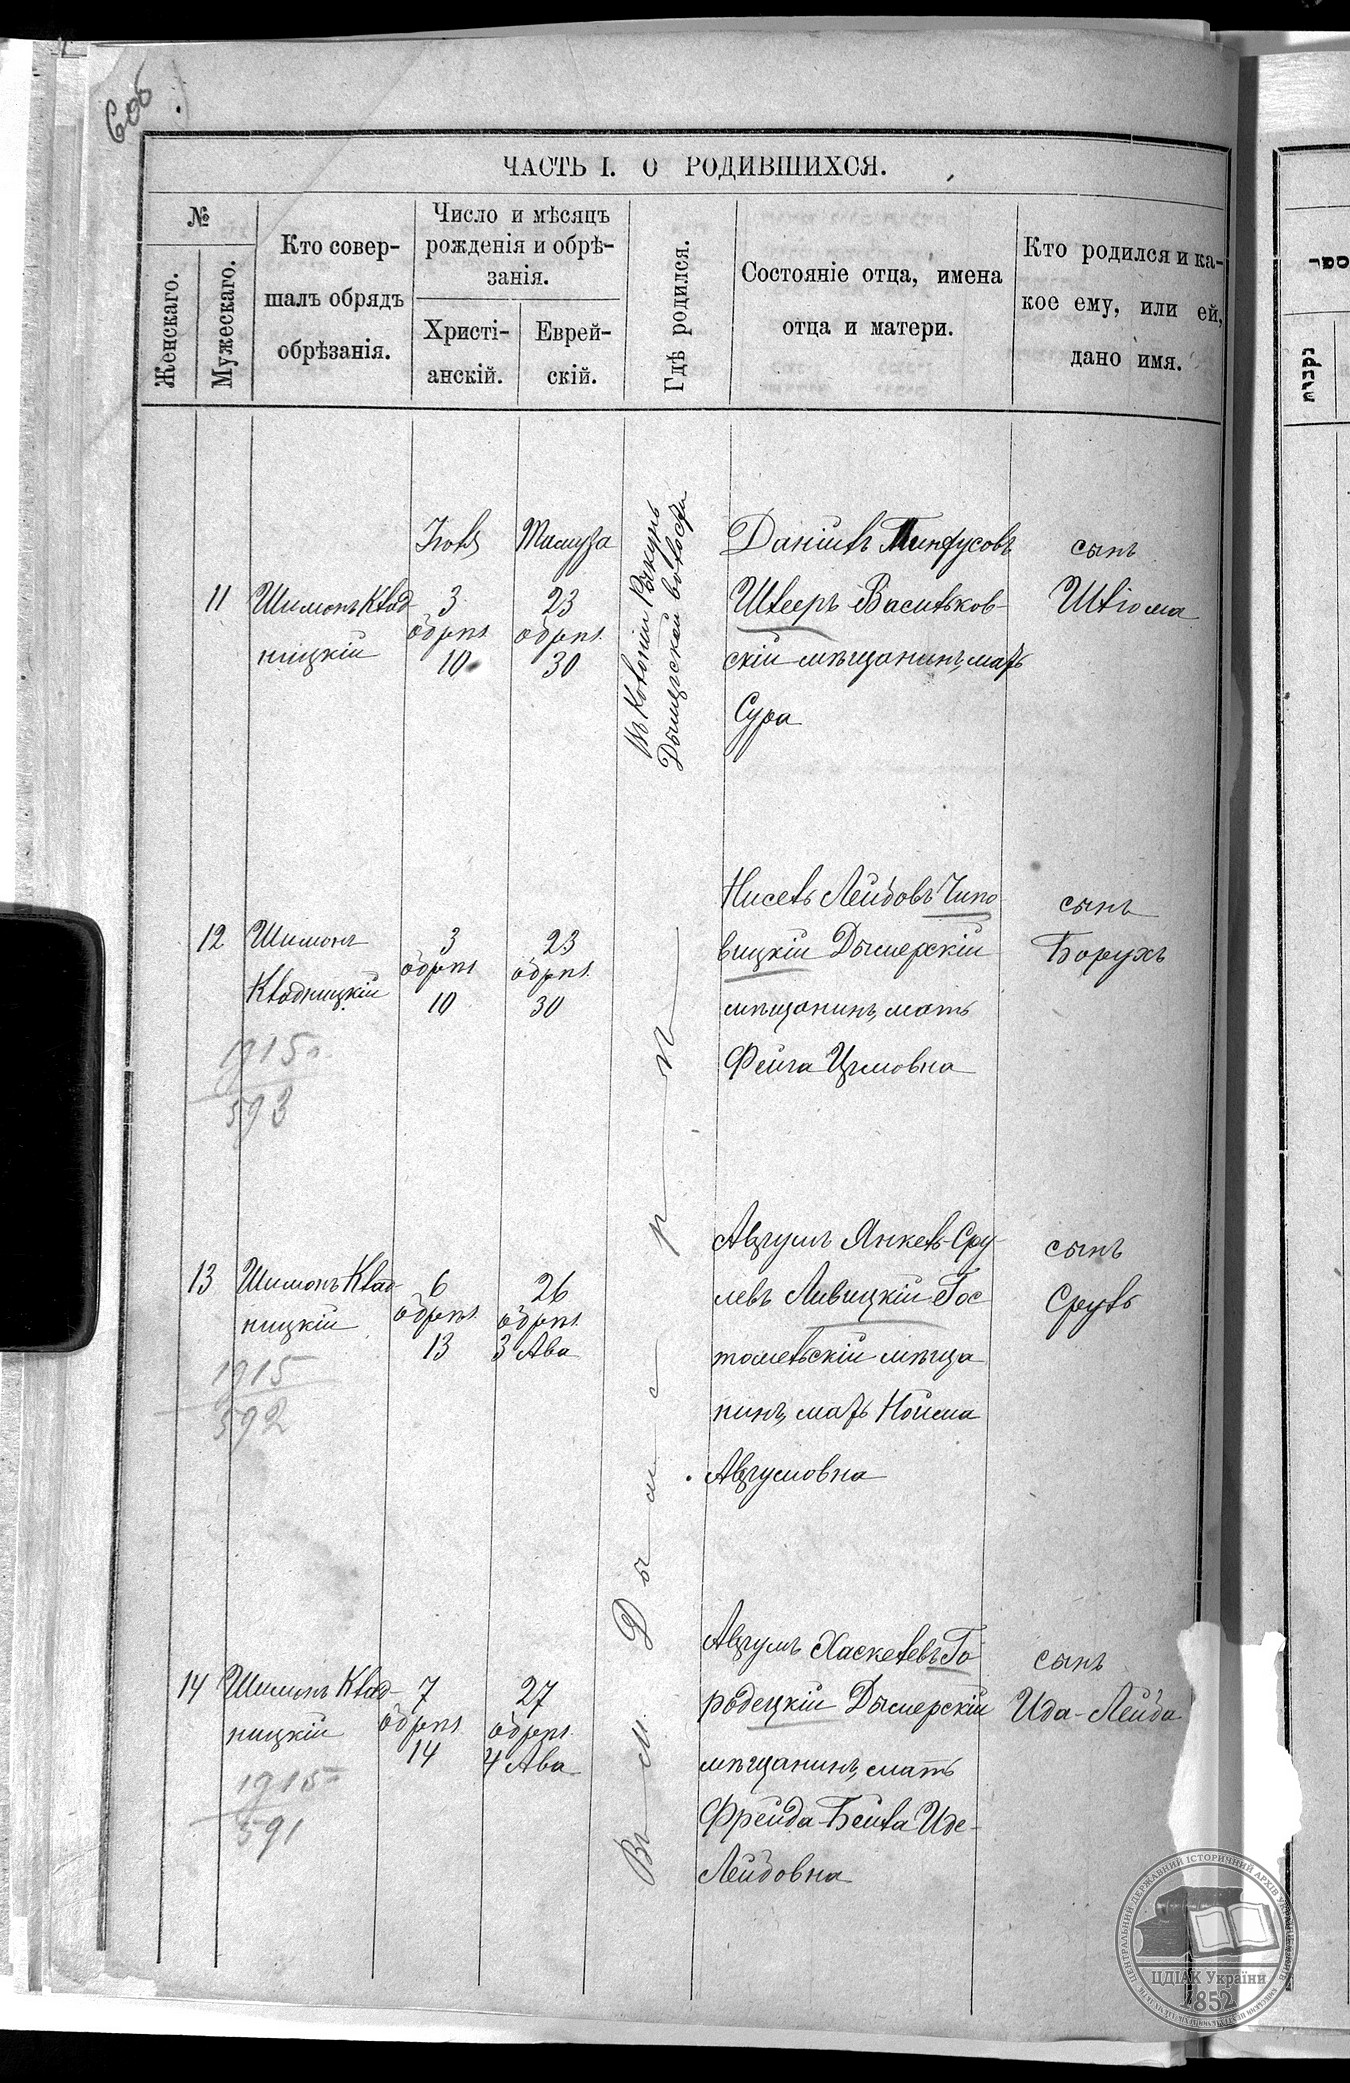 606
ЧАСТЬ I. О РОДИВШИХСЯ.
№
Женскаго.
Мужескаго.
Кто совер-
шалъ обрядъ
обрѣзанія.
Число и мѣсяцъ
рожденія и обрѣ-
занія.
Христі-
анскій.
Еврей-
скій.
Гдѣ родился.
Состояніе отца, имена
отца и матери.
Кто родился и ка-
кое ему, или ей,
дано имя.
11
Шимонъ Клад-
ницкій
Іюля
3
обрѣз.
10
Тамуза
23
обрѣз.
30
Въ Колоніи Рыкунь
Дымерской волости
Даніилъ Пинхусовъ
Штееръ Васильков-
скій мѣщанинъ, мать
Сура
сынъ
Шліома
12
Шимонъ
Кладницкій
1915
593
3
обрѣз.
10
23
обрѣз.
30
Въ М. Дымерѣ
Нисель Лейбовъ Чипо
вицкій Дымерскій
мѣщанинъ, мать
Фейга Цимовна
сынъ
Борухъ
13
Шимонъ Клад-
ницкій
1915
592
6
обрѣз.
13
26
обрѣз.
3 Ава
Авгумъ Янкель-Сру-
левъ Ливицкій Гос
томельскій мѣща
нинъ, мать Нойма
Авгумовна
сынъ
Сруль
14
Шимонъ Клад-
ницкій
1915
591
7
обрѣз.
14
27
обрѣз.
4 Ава
Авгумъ Хаскелевъ Го
родецкій Дымерскій
мѣщанинъ, мать
Фрейда-Бейла Иде-
Лейбовна
сынъ
Ида-Лейба
נקבות
ЦЕНТРАЛЬНИЙ ДЕРЖАВНИЙ ІСТОРИЧНИЙ АРХІВ УКРАЇНИ
ЦДІАК України
1852